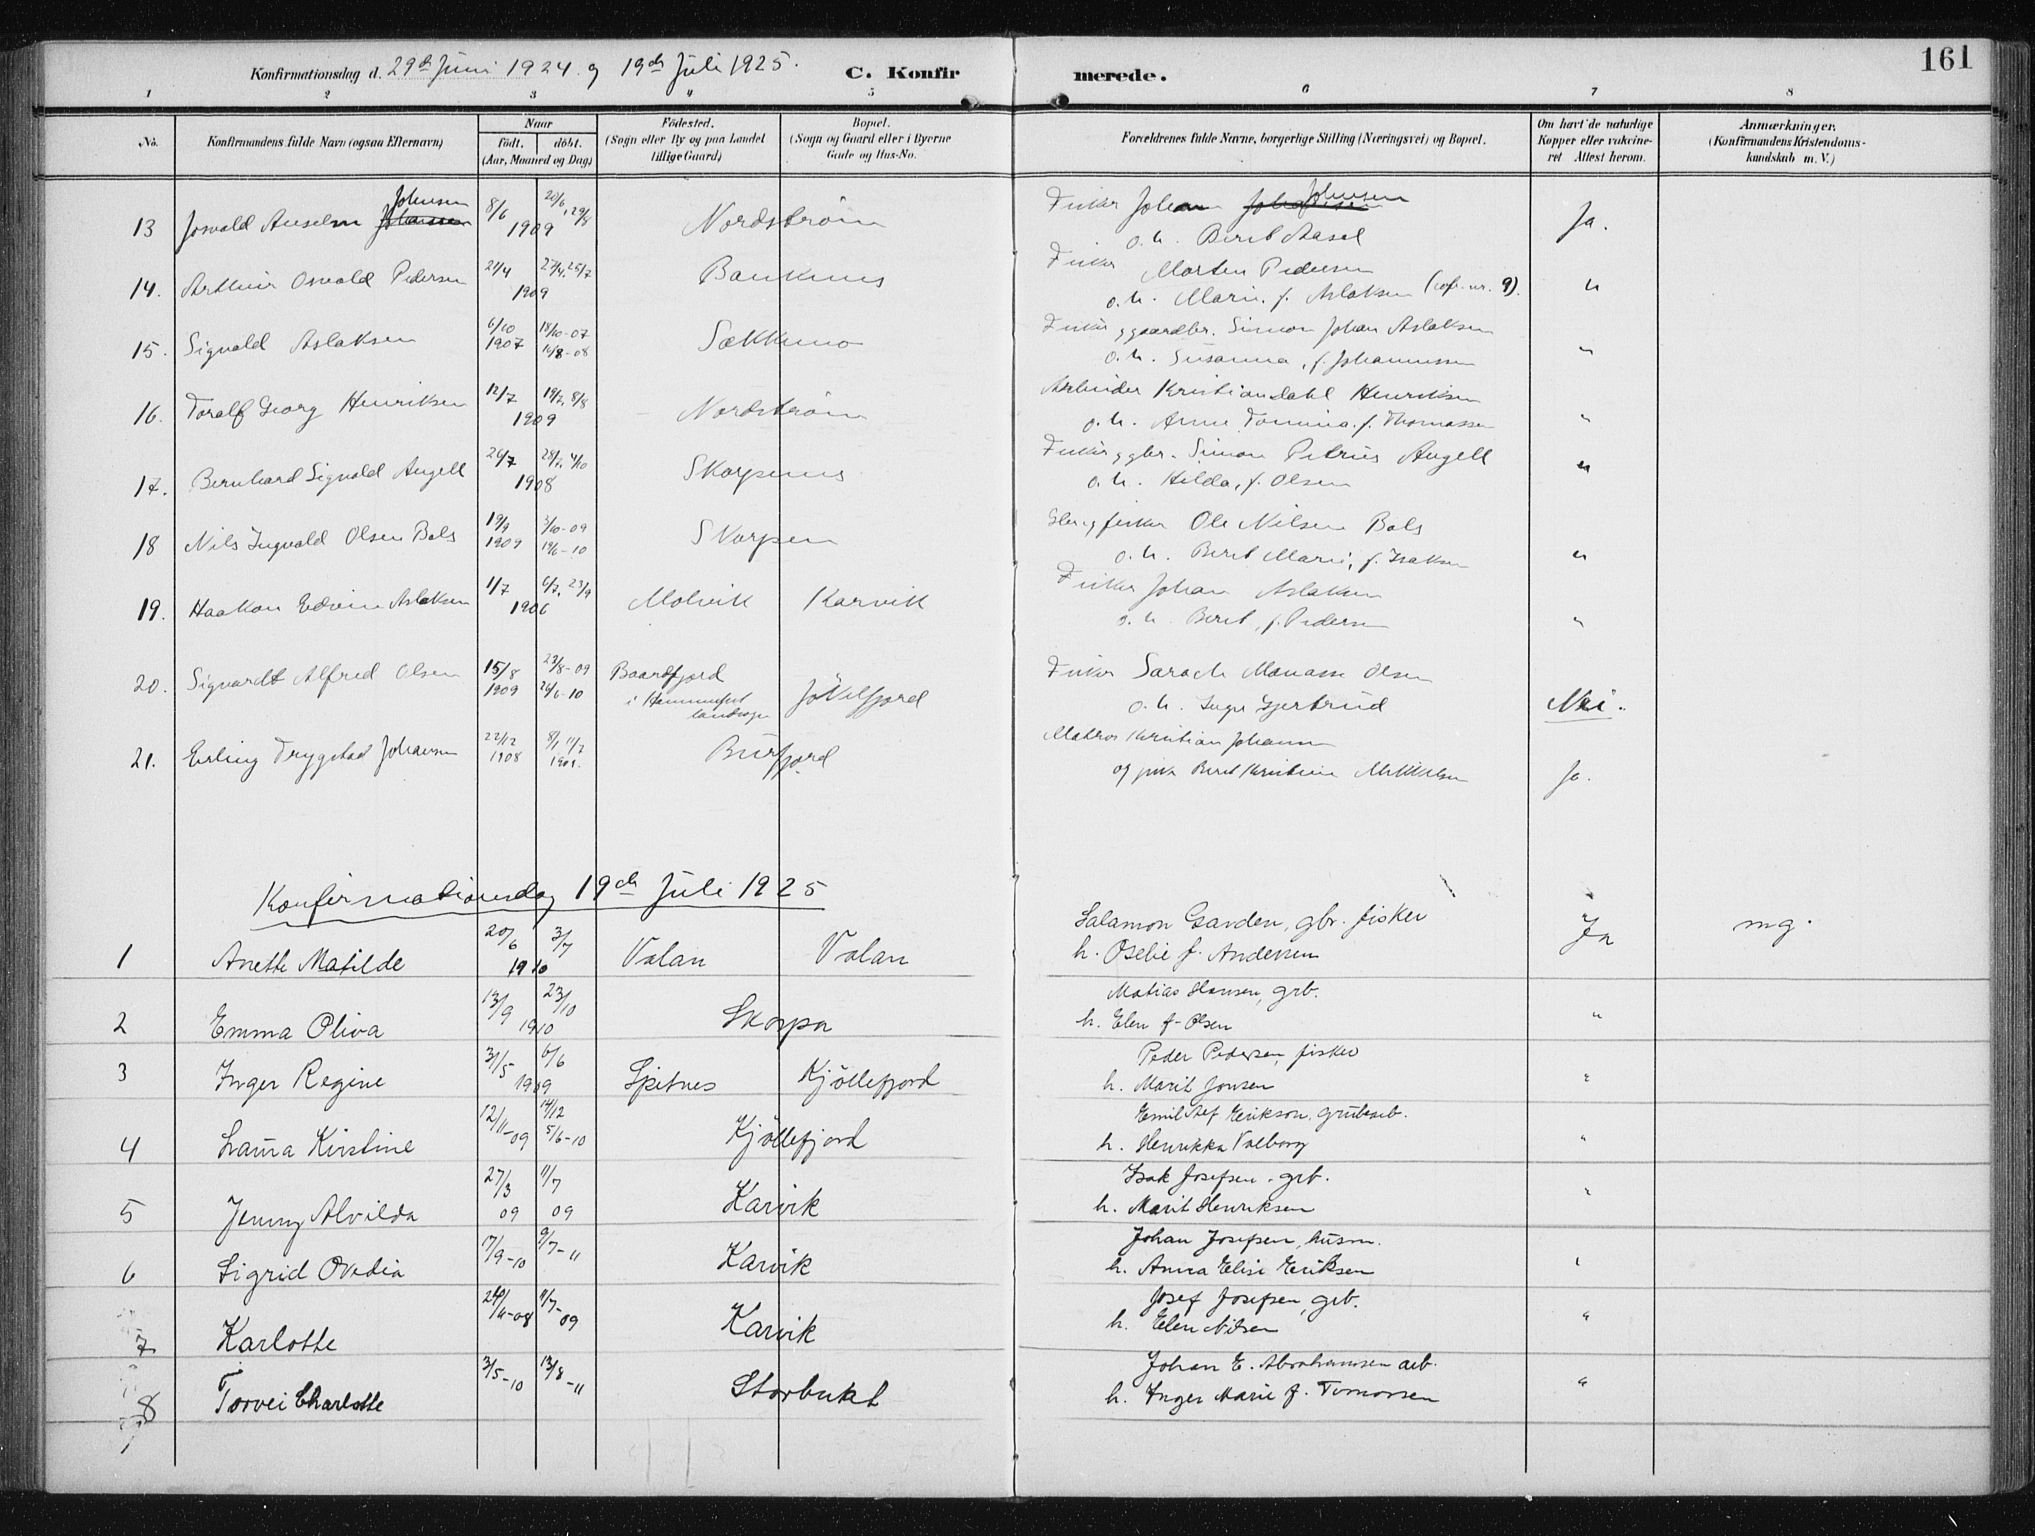 161
Konfirmationsdag d. 29de Juni 1924 og 19de Juli 1925.
C. Konfirmerede.
1 2 3 4 5 6 7 8
No.
Konfirmandens fulde Navn (ogsaa Efternavn)
Naar
födt. döbt.
(Aar, Maaned og Dag)
Födested.
(Sogn eller By og paa Landet
tillige Gaard)
Bopæl.
(Sogn og Gaard eller i Byerne
Gade og Hus-No.
Forældrenes fulde Navne, borgerlige Stilling (Næringsvei) og Bopæl.
Om havt de naturlige
Kopper eller vakcine-
ret Attest herom.
Anmærkninger.
(Konfirmandens Kristendoms-
kundskab m. V.)
13 Josvald Anselm Johansen Johnsen 8/6 20/6, 29/8 1909 Nordström Fisker Johan Johnsen Ja.
o. h. Berit Aasel
14. Arthur Osvald Pedersen 21/4 27/4, 25/7 1909 Bankenes Fisker Morten Pedersen "
o. h. Marie f. Aslaksen (cfr. nr. 9).
15. Sigvald Aslaksen 6/10 1907 18/10-07 16/8-08 Sækkemo Fisker g gaardbr. Simon Johan Aslaksen "
o. h. Susanna, f. Johannessen
16. Toralf Georg Henriksen 12/7 19/7, 8/8 1909 Nordström Arbeider Kristian Dahl Henriksen "
o. h. Anne Tomine f. Thomassen
17. Bernhard Sigvald Angell 26/7 28/7, 4/10 1908 Skorpenes Fisker g gbr. Simon Petrus Angell "
o. h. Hilda, f. Olsen
18 Nils Ingvald Olsen Bals 19/9 1909 3/10-09 19/6-10 Skorpen Gbr g fisker Ole Nilsen Bals "
o. h. Berit Marie, f. Isaksen
19. Haakon Edvin Aslaksen 1/7 6/7, 23/9 1906 Molvik Karvik Fisker Johan Aslaksen "
o. h. Berit, f. Pedersen
20. Sigvardt Alfred Olsen 15/8 1909 22/8-09 26/6-10 Baardfjord i Hammerfest landsogn Jökelfjord Fisker Sarach Manasse Olsen Nei.
o. h. Inger Gjertrud
21. Erling Trygstad Johansen 22/12 1908 8/1, 11/7 1909. Burfjord Matros Kristian Johansen
og pike Berit Kristine Mikkelsen Ja.
Konfirmationsdag 19de Juli 1925
1 Anette Matilde 20/6 3/7 1910 Valan Valan Salamon Garden, gbr. fisker Ja mg.
h. Oselie f. Andersen
2 Emma Oliva 13/9 23/10 1910 Skorpa Matias Hansen, grb. "
h. Elen f. Olsen
3 Inger Regine 31/5 6/6 1909 Spitnes Kjöllefjord Peder Pedersen, fisker "
h. Marit Jonsen
4 Laura Kirstine 12/11-09 14/12 5/6-10 Kjöllefjord Emil Alf Erikson, grubearb. "
h. Henrikka Valborg
5 Jenny Alvilda 27/3 09 11/7 09 Karvik Isak Josefsen, grb. "
h. Marit Henriksen
6 Sigrid Ovedia 17/9-10 9/7-11 Karvik Johan Josefsen, husm. "
h. Anna Elise Eriksen
7 Karlotte 24/11-08 11/7-09 Karvik Josef Josefsen, grb. "
h. Elen Nilsen
8 Torvei Charlotte 3/5-10 13/8-11 Storbukt Johan E. Abrahamsen arb. "
h. Inger Marie f. Tomassen